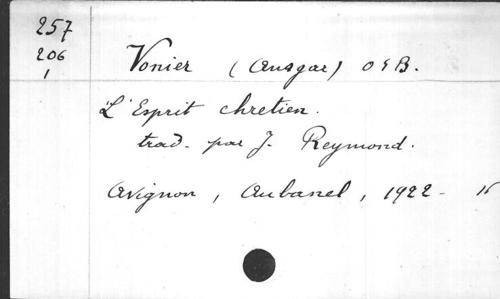 257
206
1
Vonier (Ansgar) O S B.
L'Esprit chretien.
trad. par J. Reymond.
Avignon, Aubanel, 1922 -